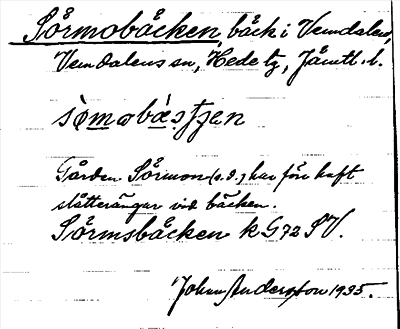 Sörmobäcken, bäck i Vemdalen,
Vemdalens sn, Hede tg, Jämtl. l.
Gården Sörmon (s.d.) har förr haft
slåtterängar vid bäcken.
Sörmsbäcken k G 72 SV.
Johan Andersson 1935.